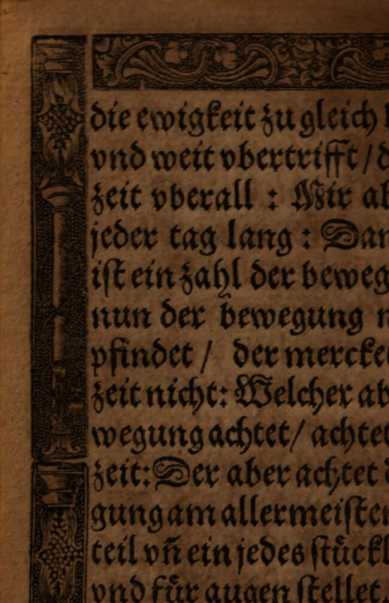 die ewigkeit zu gleich
vnd weit vbertrifft /
zeit vberall : Wir
jeder tag lang : Dan
ist ein zahl der beweg
nun der bewegung
pfindet / der mercke
zeit nicht: Welcher ab
wegung achtet / achtet
zeit: Der aber achtet
gung am allermeisten
teil vñ ein jedes stückl
vnd für augen stellet